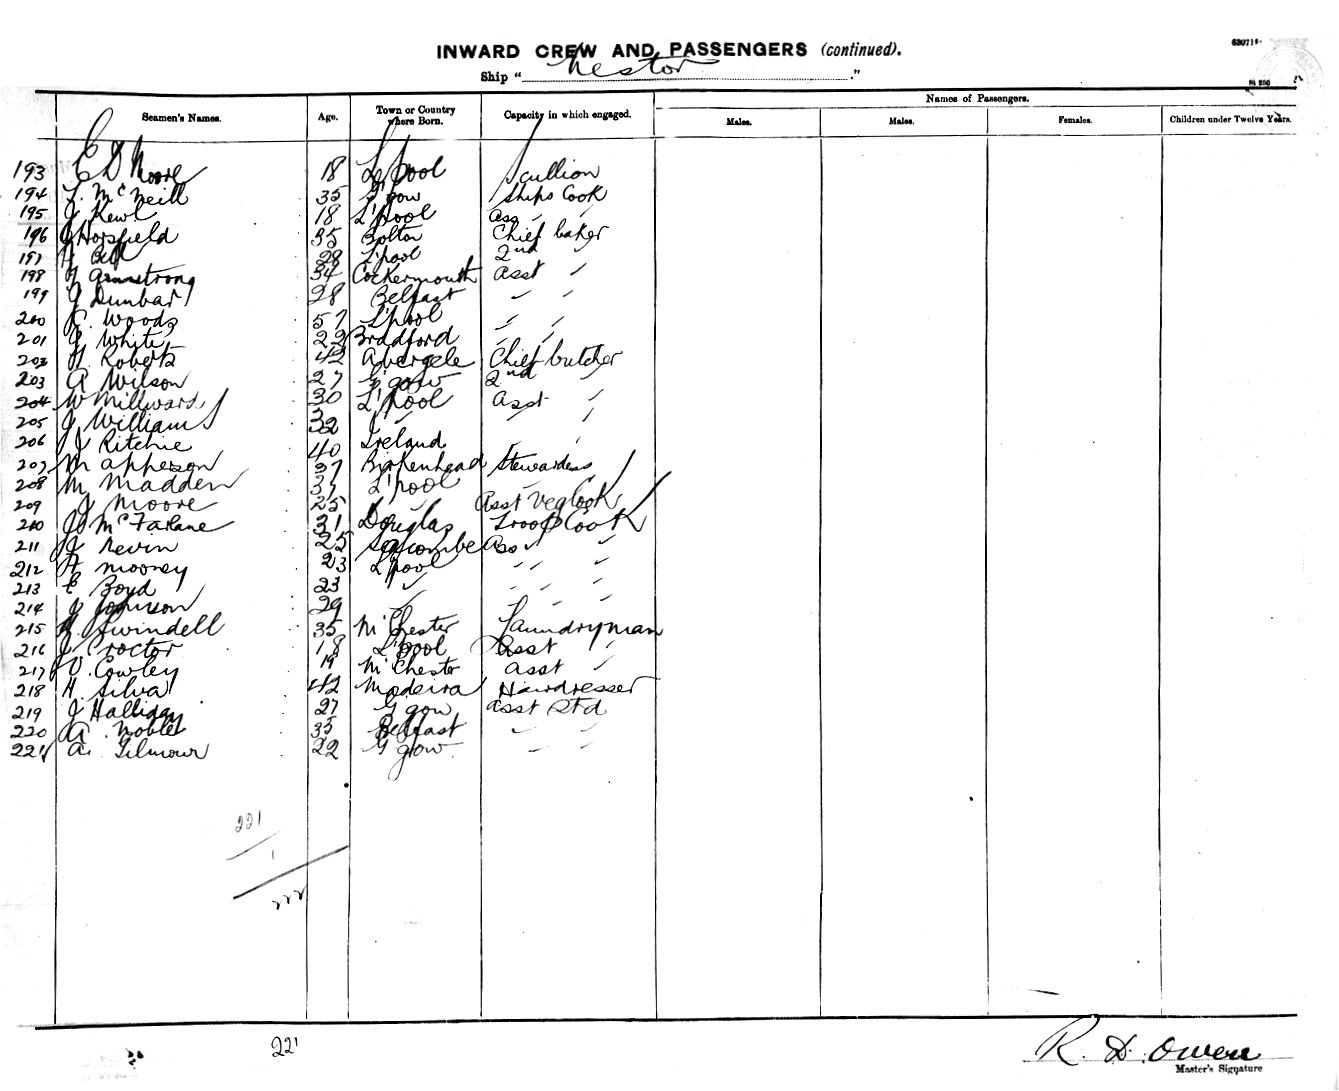 INWARD CREW AND PASSENGERS (continued).
Ship "Nestor."
Seamen's Names. Age. Town or Country where Born. Capacity in which engaged. Names of Passengers.
Males. Males. Females. Children under Twelve Years.
193 E D Moore 18 L'pool Scullion
194 McNeill 35 G'gow Ships Cook
195 J Kewl 18 L'pool Ass " "
196 J Horsfield 35 Bolton Chief baker
197 Bell 28 L'pool 2nd "
198 Armstrong 34 Cockermouth Asst "
199 J Dunbar 28 Belfast " "
200 Woods 57 L'pool " "
201 J White 22 Bradford " "
202 H Roberts 42 Abergele Chief butcher
203 A Wilson 27 G'gow 2nd "
204 W Millward 30 L'pool Asst "
205 J Williams 32 " "
206 J Ritchie 40 Ireland "
207 M Apperson 37 Birkenhead Stewardess
208 M Madden 37 L'pool "
209 J Moore 25 " Asst Veg Cook
210 McFarlane 31 Douglas Troop Cook
211 J Nevin 25 Seacombe Ass "
212 Mooney 23 L'pool " " "
213 E Boyd 23 " " " "
214 J Johnson 29 " " " "
215 Swindell 35 M'Chester Laundryman
216 J Proctor 18 L'pool Asst "
217 Cowley 19 M'Chester Asst "
218 H. Silva 42 Madeira Hairdresser
219 J Halligan 27 G'gow Asst Std
220 A. Noble 35 Belfast " "
221 A. Gilmour 22 G'gow " "
221
1
222
221
R. D. Owen
Master's Signature